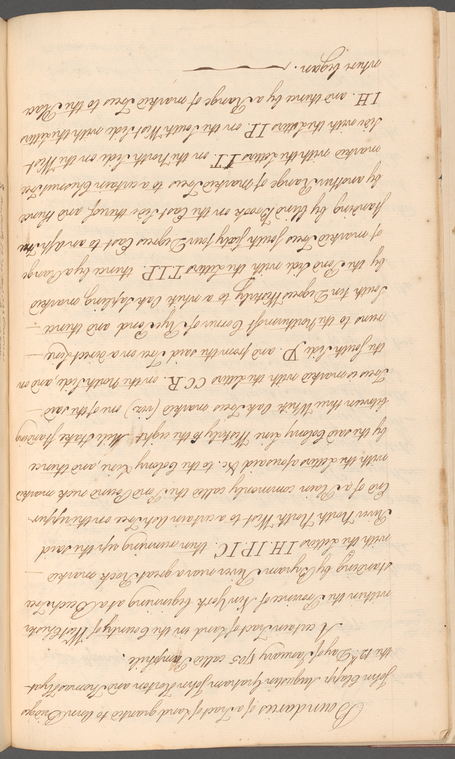 Boundaries of a Tract of Land granted to Anne Bridges
John Clapp Augustin Graham John Horton and Thomas
the 12th Day of January 1705 called
A certain Tract of Land in the County of West Chester
within the Province of New York beginning at a Beech Tree
standing by Byram River near a great Rock marked
with the letters IH. IP. IC. then running up the said
River North North West to a certain Ash Tree on the upper
End of a Plain commonly called the Pond Round neck marked
with the letters aforesaid &c. to the Colony Line, and thence
by the said Colony Line Westerly to the eight Mile Stake standing
between three White Oak Trees marked one of the said
Trees is marked with the letters CCR. on the North side and on
the South side Y. and from the said Tree on a direct Line
runs to the Northernmost Corner of Rye Pond and thence
South ten Degrees Westerly to a white Oak Sapling marked
by the Pond side with the letters T.I.P. thence by a Range
of marked Trees South forty four Degrees East to an Ash Tree
standing by blind Brook on the East side thereof and thence
by another Range of marked Trees to a certain Chesnut Tree
marked with the letters IT on the North side on the West
side with the letters IP. on the South West side with the letters
IH. and thence by a Range of marked Trees to the Place
where began.